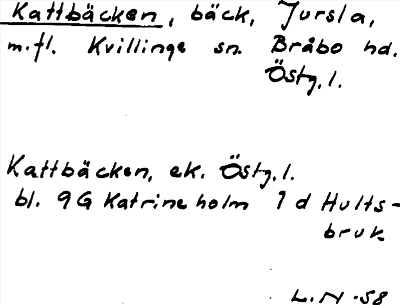 Kattbäcken, bäck, Jursla,
m.fl. Kvillinge sn. Bråbo hd.
Östg.l.
Kattbäcken, ek. Östg.l.
bl. 9G Katrineholm 1d Hults-
bruk
L.N-58